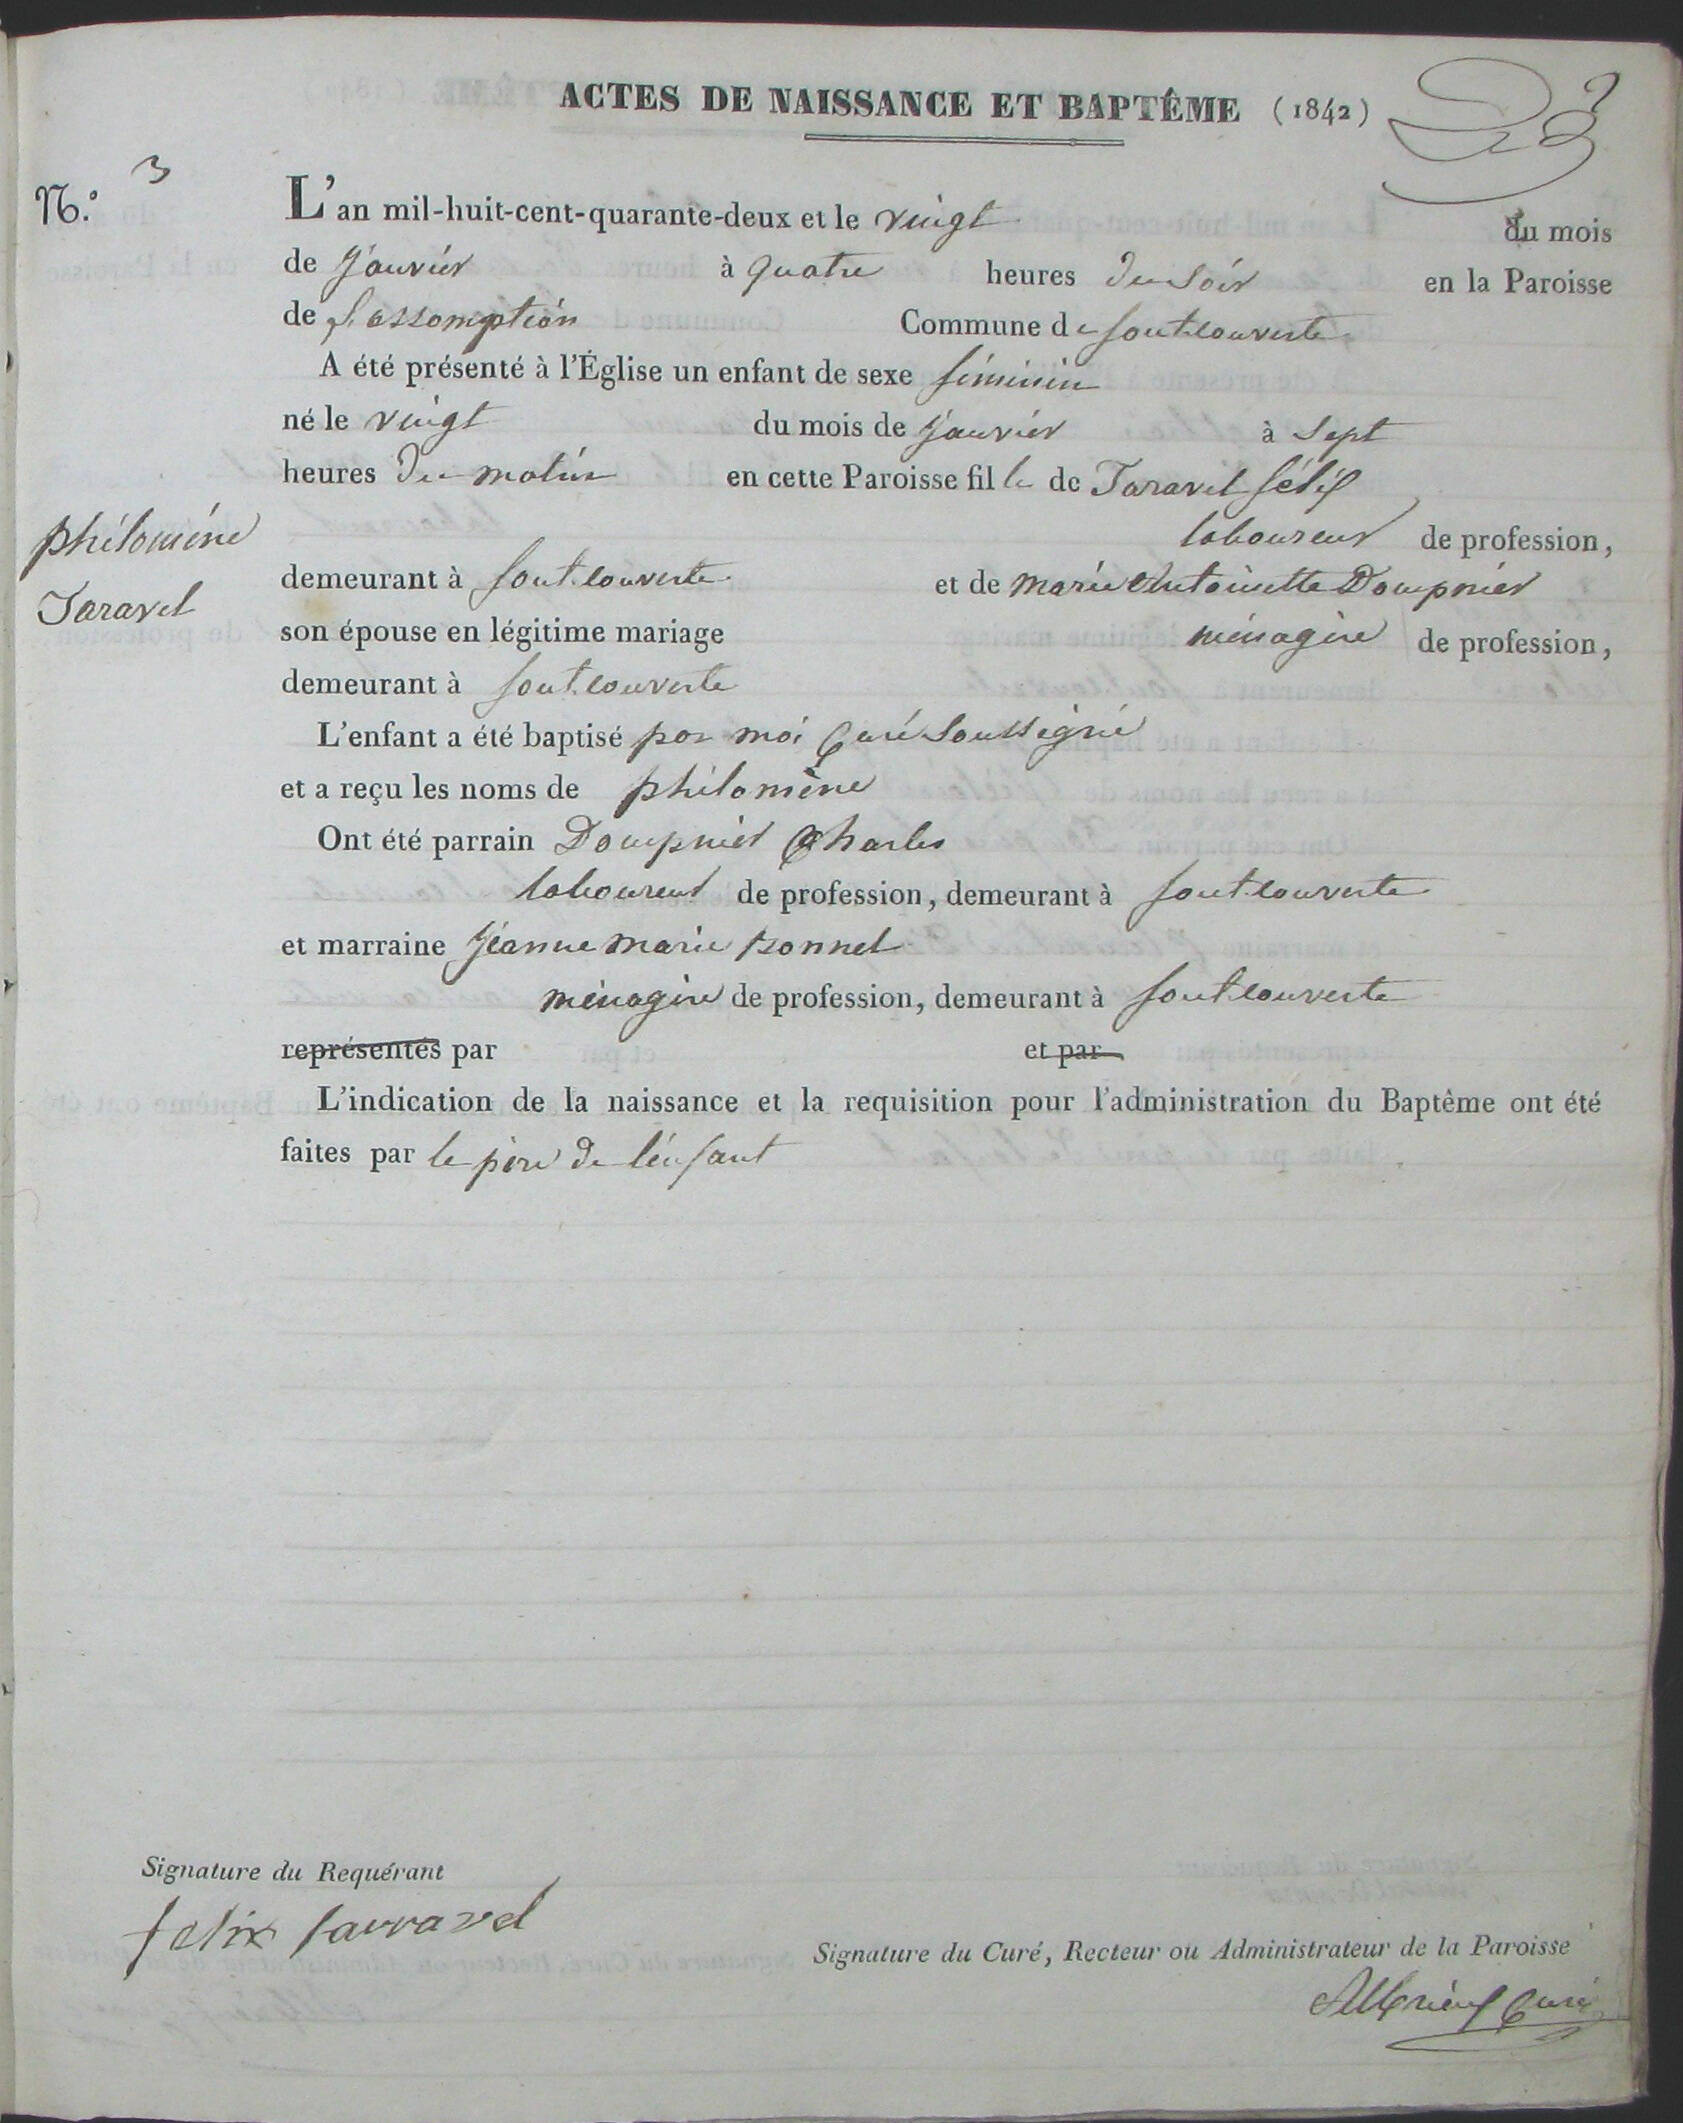 ACTES DE NAISSANCE ET BAPTÊME (1842)
N.° 3
L'an mil-huit-cent-quarante-deux et le vingt du mois
de janvier à quatre heures du soir en la Paroisse
de l'assomption Commune de fontcouverte
A été présenté à l'Église un enfant de sexe féminin
né le vingt du mois de janvier à sept
heures du matin en cette Paroisse fille de Taravel félix
laboureur de profession,
philoméne
Taravel
demeurant à fontcouverte et de marie Antoinette Dompnier
son épouse en légitime mariage ménagère de profession,
demeurant à fontcouverte
L'enfant a été baptisé par moi Curé soussigné
et a reçu les noms de philomène
Ont été parrain Dompnier Charles
laboureur de profession, demeurant à fontcouverte
et marraine jeanne marie bonnel
ménagère de profession, demeurant à fontcouverte
représentés par et par
L'indication de la naissance et la requisition pour l'administration du Baptême ont été
faites par le père de l'enfant
Signature du Requérant
felix tarravel
Signature du Curé, Recteur ou Administrateur de la Paroisse
Albrieux Curé